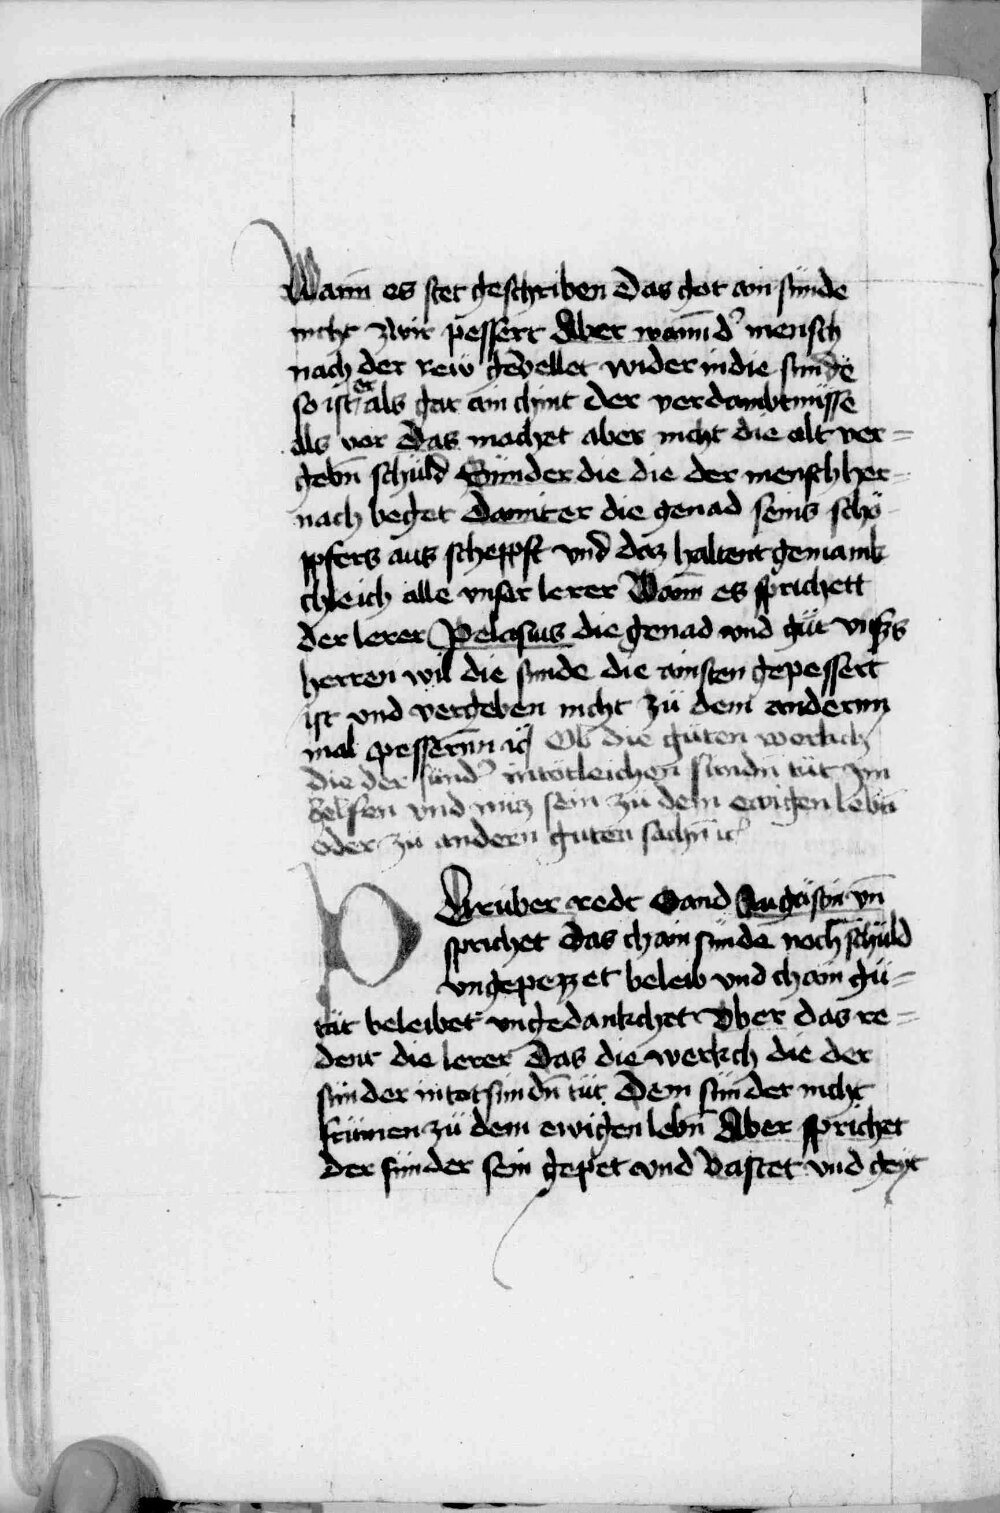 Wann es stet geschriben Das got ain sünde
nicht zwir pessert Aber wann d' mensch
nach der rew gevellet wider in die sunde
so ist er als gar ain chint der verdambtnüsse
als vor Das machet aber nicht die alt ver=
gebn̄ schuld Sünder die die der mensch her=
nach beget Damit er die genad seins schö-
pfers aus schepft vnd daz haltent gemaink
chleich alle vnser lerer Wann es sprichett
der lerer Pelasius die genad vnd güt vnsers
herren wil die sunde die ainsten gepessert
ist vnd vergeben nicht zü dem andernn
mal pessernn ꝛc Ob die güten werkch
die der sund' in tötleichen sundn̄ tüt ym
helfen vnd nücz sein zü dem ewigen lebn̄
oder zu andern guten sachn̄ ꝛc
Darüber redt Sand Augustin vn̄
sprichet das chain sünde noch schuld
vngepezzet beleib vnd chain gü=
tät beleibet vngedankchet Vber das re=
dent die lerer Das die werkch die der
sünder in totsundn̄ tüt Dem sünder nicht
frümen zü dem ewigen lebn̄ Aber sprichet
der sünder sein gepet vnd vastet vnd geyt